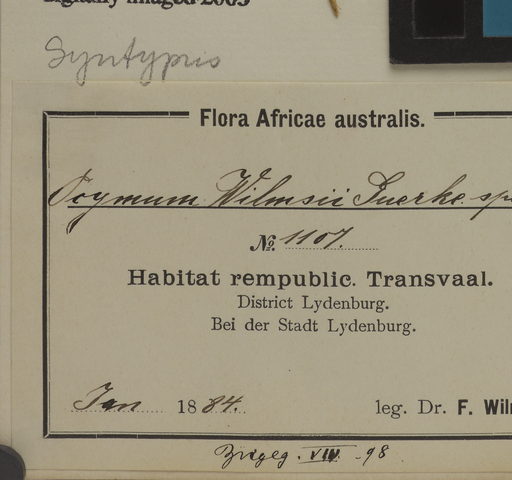 digitally imaged 2005
Syntypus
Flora Africae australis.
Ocymum Wilmsii Guerke sp
№. 1107.
Habitat rempublic. Transvaal.
District Lydenburg.
Bei der Stadt Lydenburg.
Jan 1884. leg. Dr. F. Wil
VIII. -98